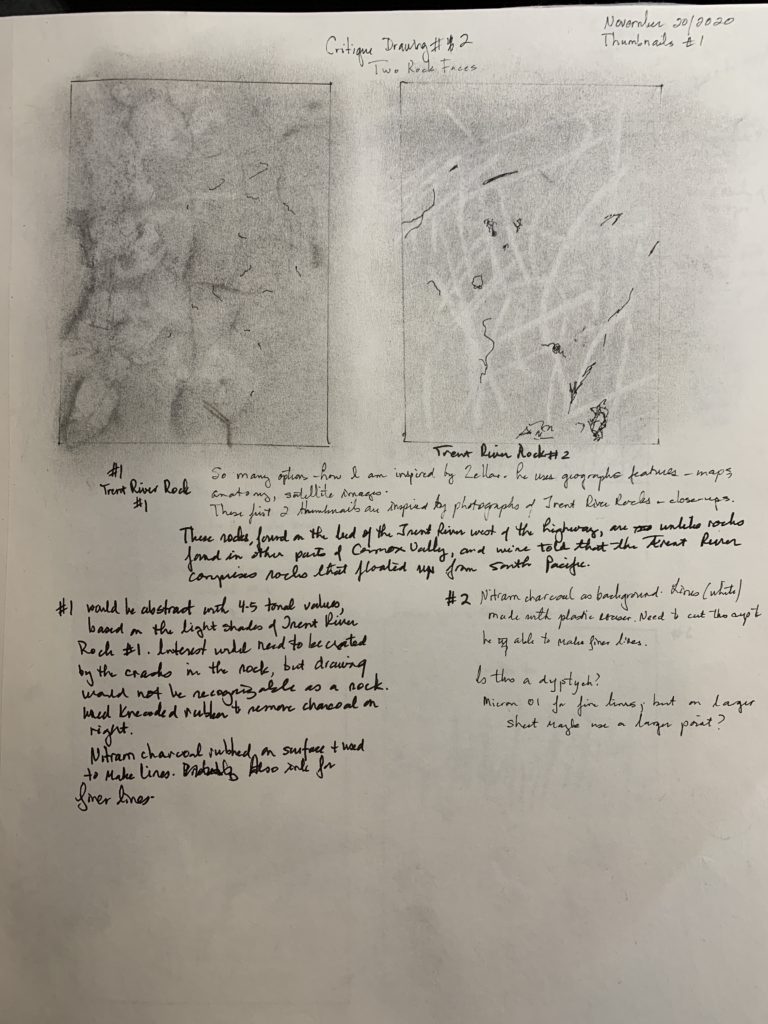 November 20/2020
Thumbnails #1
Critique Drawing # 2
Two Rock Faces
#1
Trent River Rock
#1
Trent River Rock #2
So many option - how I am inspired by Zellar. he uses geographic features - maps,
anatomy, satellite images.
These first 2 thumbnails are inspired by photographs of Trent River Rocks - close-ups.
These rocks, found on the bed of the Trent River west of the highway, are unlike rocks
found in other parts of Comox Vally, and we're told that the Trent River
comprises rocks that floated up from South Pacific.
#1 would be abstract with 4-5 tonal values,
based on the light shades of Trent River
Rock #1. Interest would need to be created
by the cracks in the rock, but drawing
would not be recognizable as a rock.
Used Kneaded rubber to remove charcoal on
right.
Nitram charcoal rubbed on surface + used
to make lines. Also ink for
finer lines.
#2 Nitram charcoal as background. Lines (white)
made with plastic eraser. Need to cut this up to
be able to make finer lines.
Is this a dyptych?
Micron 01 for fine lines, but on larger
sheet maybe use a larger point?